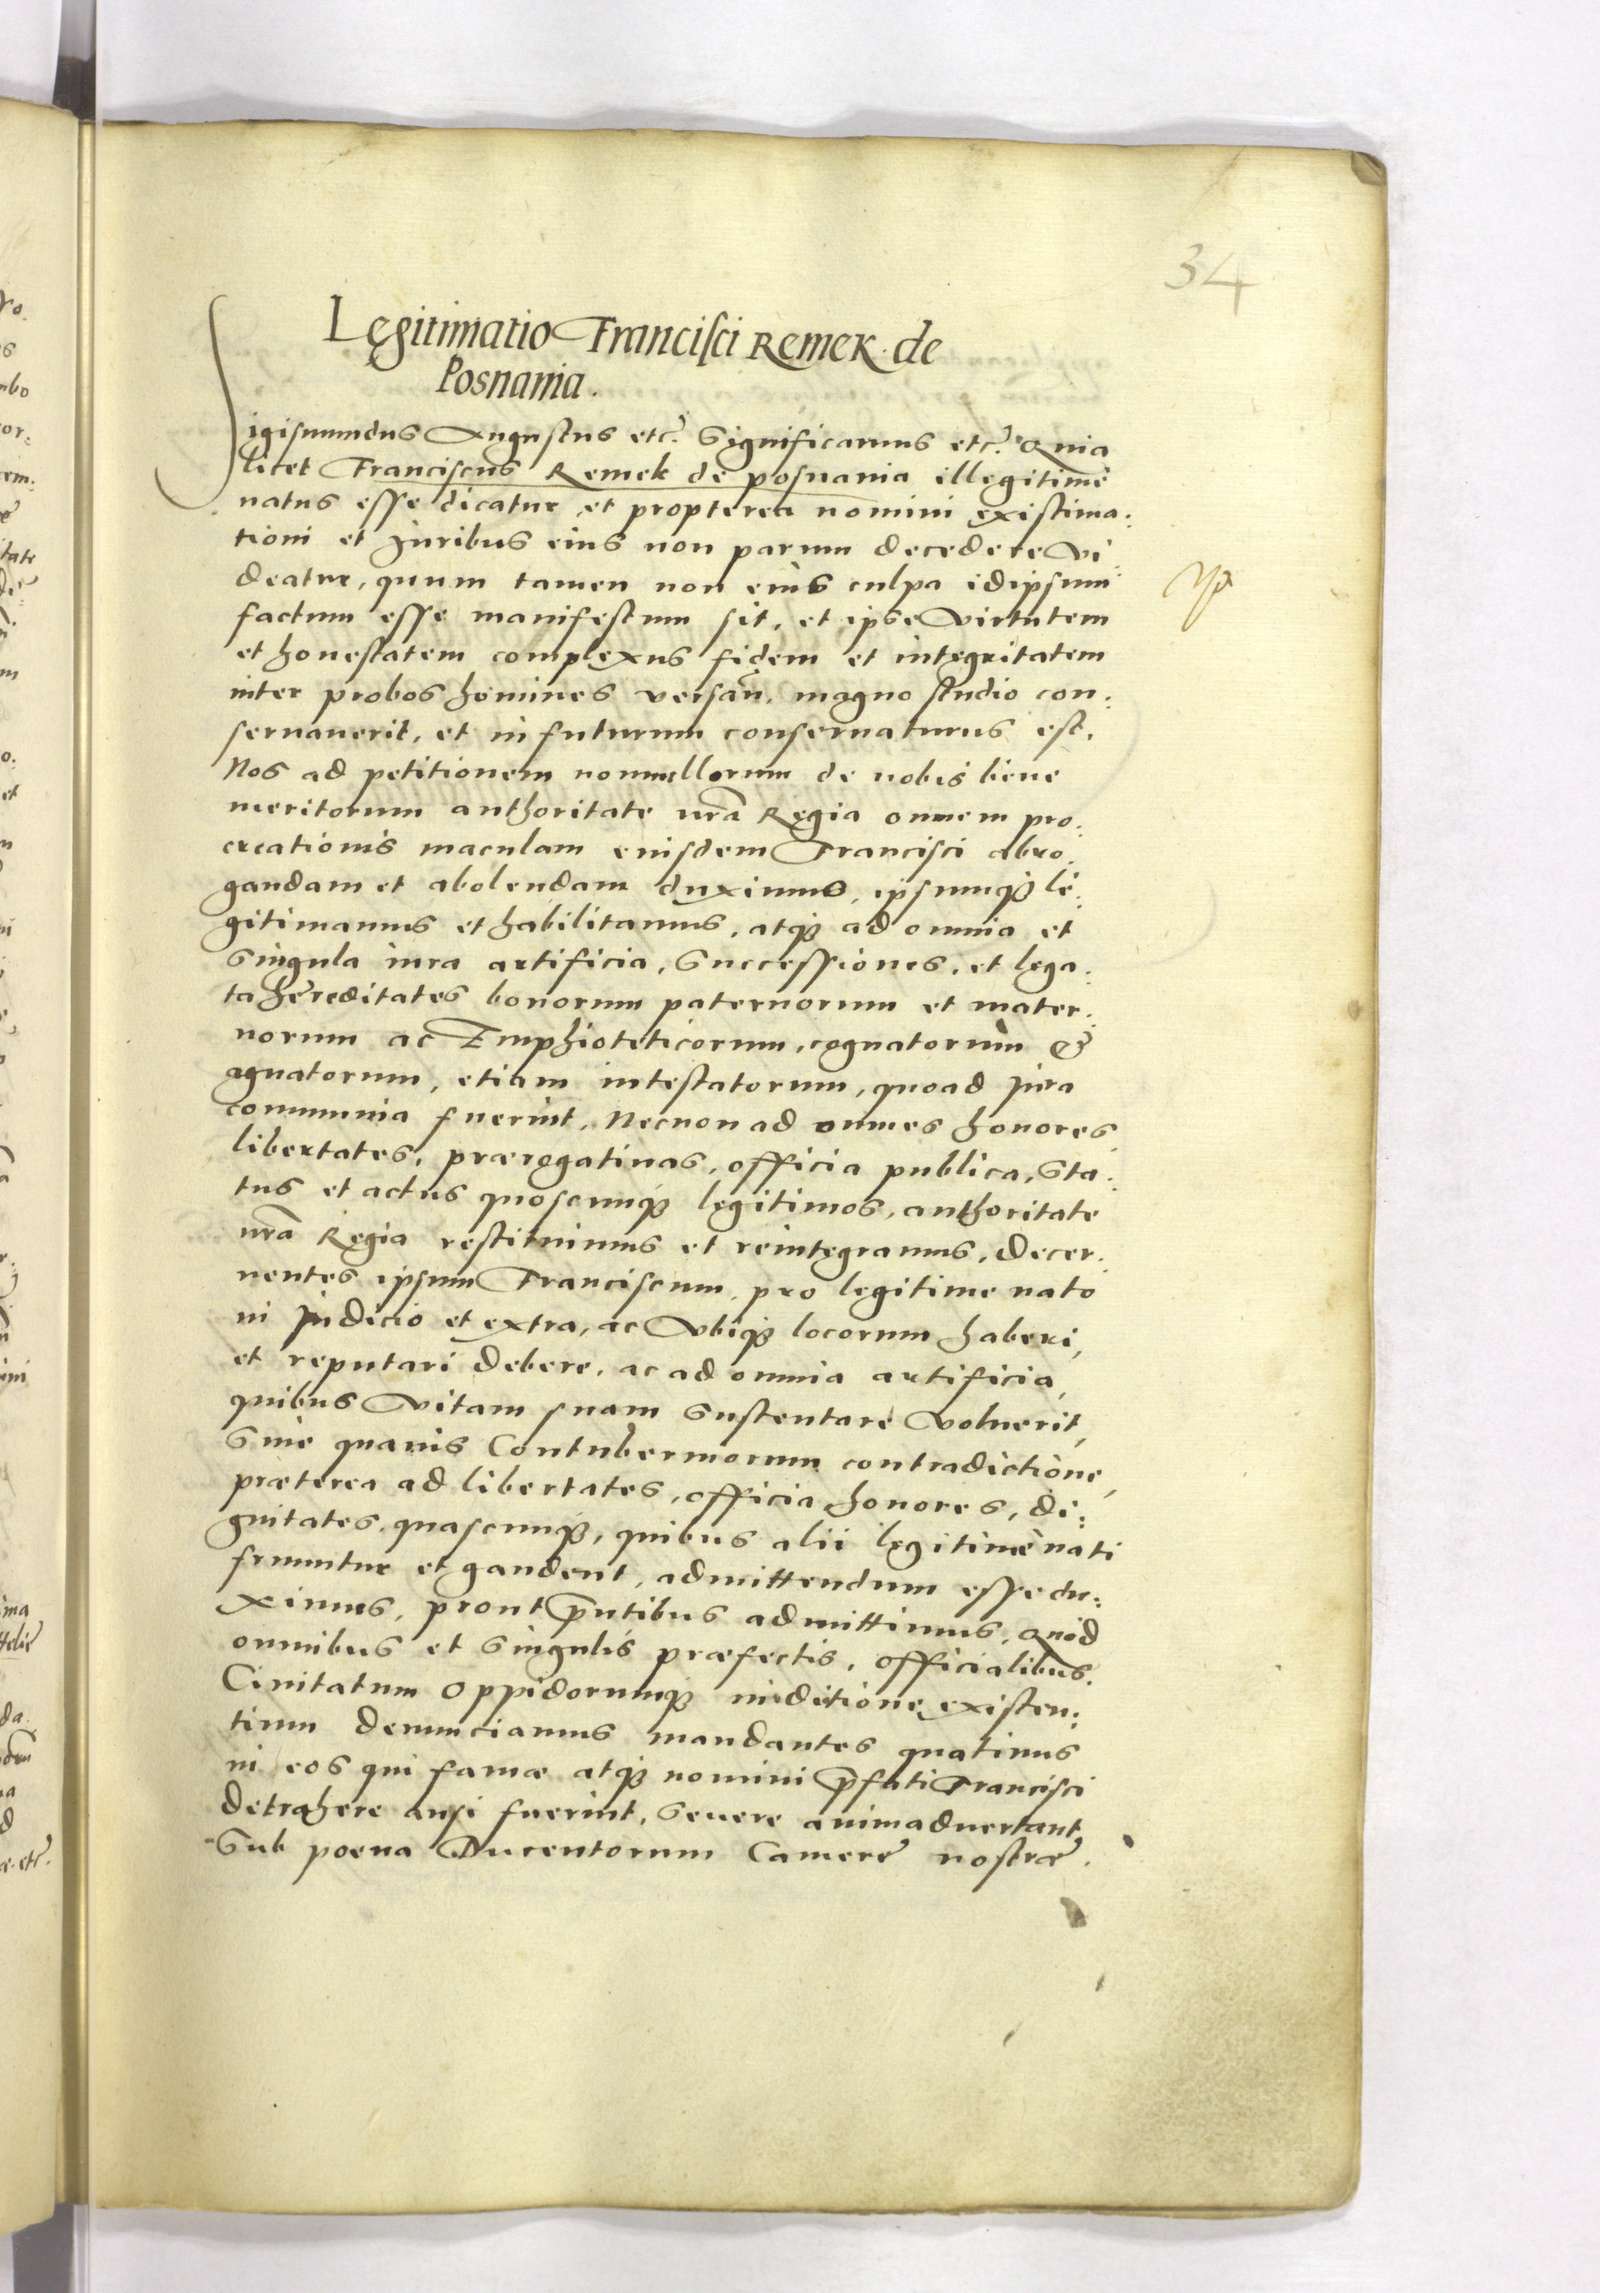 34
Legitimatio Francisci Remek de
Posnania.
Sigismundus Augustus etc. Significamus etc. Quia
licet Franciscus Remek de posnania illegitimè
natus esse dicatur, et propterea nomini existima:
tioni et Juribus eius non parum decedere vi:
deatur, quum tamen non eius culpa idipsum
factum esse manifestum sit, et ipse virtutem
et honestatem complexus fidem et integritatem
inter probos homines versañ. magno studio con:
seruauerit, et in futurum conseruaturus est,
Nos ad petitionem nonnullorum de nobis bene
meritorum authoritate nrã Regia omnem pro:
creationis maculam eiusdem Francisci abro:
gandam et abolendam duximus, ipsumq3 le:
gitimamus et habilitamus, atq3 ad omnia et
Singula iura artificia, Successiones, et lega:
ta hereditates bonorum paternorum et mater:
norum ac Emphioteticorum, cognatorum &
agnatorum, etiam intestatorum, quoad Jura
communia fuerint, Necnon ad omnes honores
libertates, prærogatiuas, officia publica, Sta:
tus et actus quoscunq3 legitimos, authoritate
nrã Regia restituimus et reintegramus, Decer:
nentes ipsum Franciscum, pro legitime nato
in Judicio et extra, ac Vbiq3 locorum haberi,
et reputari Debere, ac ad omnia artificia,
quibus Vitam suam Sustentare Voluerit,
Sine quauis Contuberniorum contradictione,
præterea ad libertates, officia honores, di:
gnitates, quascunq3, quibus alii legitimè nati
fruuntur et gaudent, admittendum esse du:
ximus, prout p̃ntibus admittimus, Quod
omnibus et Singulis præfectis, officialibus.
Ciuitatum Oppidorumq3 in ditione existen:
tium Denunciamus mandantes quatinus
in eos qui famæ atq3 nomini p̃fati Francisci
Detrahere ausi fuerint, Seuere animaduertant
Sub poena Ducentorum Cameræ nostræ.